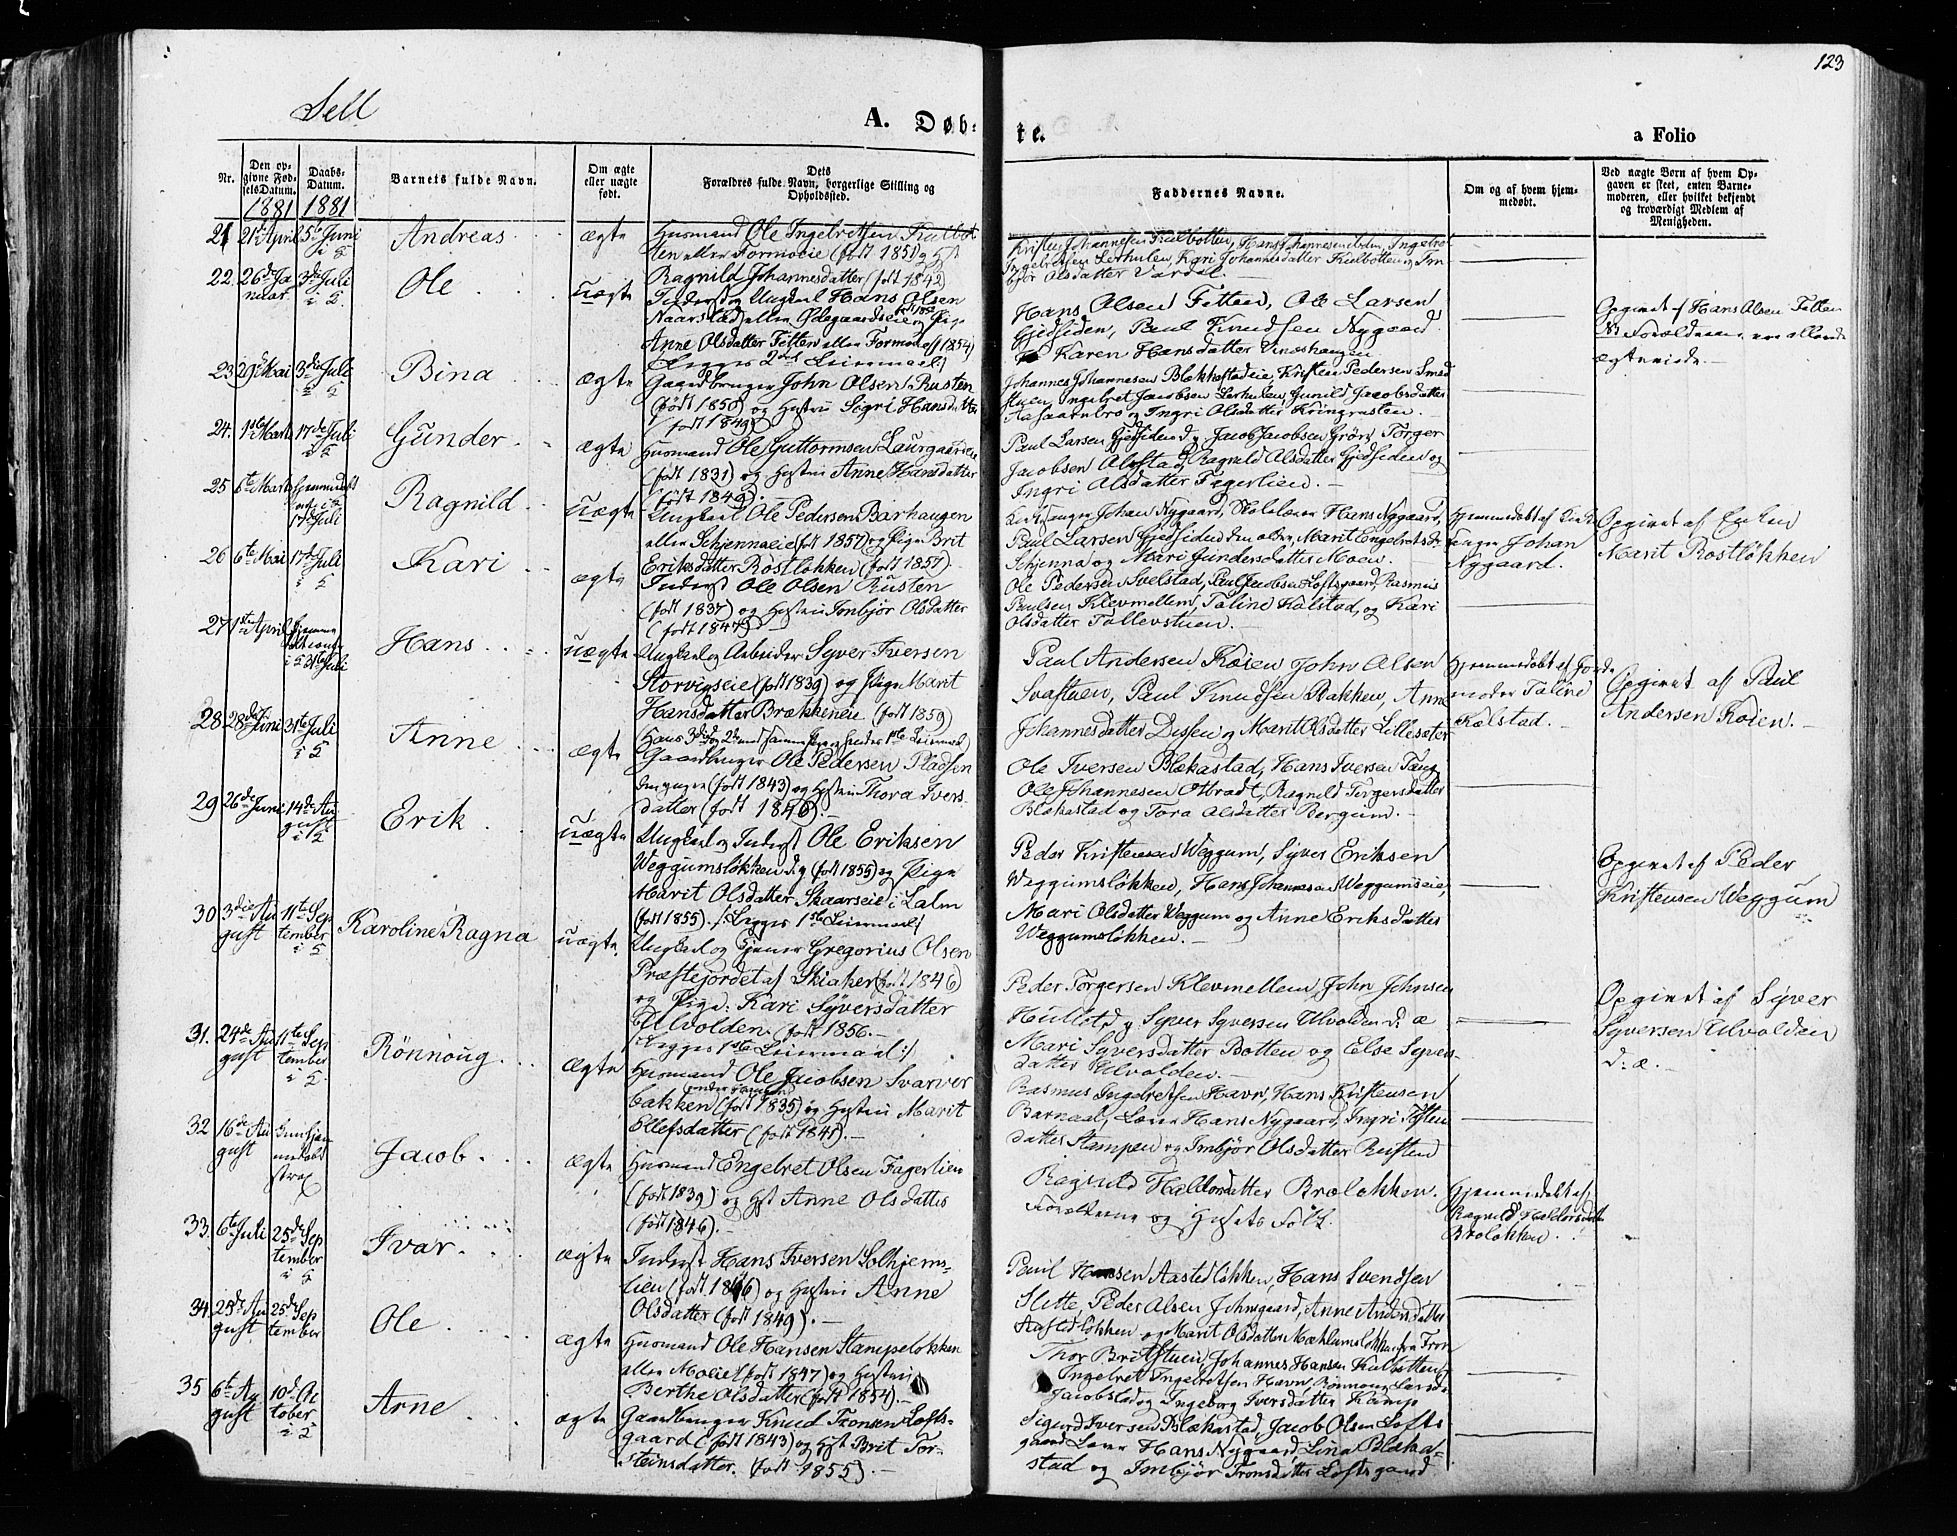 123
Sell
A. Døb-
te.
a Folio
Nr.
Den op-
givne Fød-
selsDatum.
1881
Daabs-
Datum.
1881
Barnets fulde Navn.
Om ægte
eller uægte
født.
Dets
Forældres fulde Navn, borgerlige Stilling og
Opholdssted.
Faddernes Navne.
Om og af hvem hjem-
medøbt.
Ved uægte Børn af hvem Op-
gaven er skeet, enten Barne-
moderen, eller hvilket bekjendt
og troværdigt Medlem af
Menigheden.
21
21 April
5te Juni
Andreas
ægte
Husmand Ole Ingebretsen Kulbot
ten eller Formoeie (født 1851) og Hst
Ragnild Johannesdatter (født 1842)
Kristen Johannesen Kulbotten, Hans Johannesen ibdm, Ingebr
Ingebretsen Lerhulen, Kari Johannesdatter Kulbotten og Im
bjør Olsdatter Vardal.
22.
26de Ja
nuar.
3die Juli
i S.
Ole
uægte
Inderst og Ungkarl Hans Olsen
Naarstad eller Ødegaardseie og Pige
Anne Olsdatter Fetten eller Formoe (f 1854)
Begges 2det Leiermaal/
Hans Olsen Fetten, Ole Larsen
Gjedsiden, Paul Knudsen Nygaard
Karen Hansdatter Vineshaugen
Opgivet af Hans Olsen Fetten
NB Forældrene ere allerede
ægteviede.
23
29de Mai
3die Juli
i S
Bina
ægte
Gaardbruger John Olsen Rusten
(født 1850) og Hustru Sigri Hansdatter
(født 1849)
Johannes Johannesen Blekastadeie, Kristen Pedersen Smed
stuen, Ingebret Jacobsen Lerhulen, Gunild Jacobsdatter
Aasaarenbro og Ingri Olsdatter Kringrusten.
24.
1ste Marts
17de Juli
i S
Gunder
ægte
Husmand Ole Guttormsen Laurgaardeie
(født 1831) og Hustru Anne Hansdatter
(født 1849).
Paul Larsen Gjedsiden d y, Jacob Jacobsen Grøn, Torger
Jacobsen Ulvstad, Ragnild Olsdatter Gjedsiden og
Ingri Olsdatter Fagerlien.
25
6te Marts
Hjemmedøbt
17de Juli
Ragnild
uægte
Ungkarl Ole Pedersen Barhaugen
eller Schjennaeie (født 1857) og Pige Brit
Eriksdatter Rostløkken (født 1857).
Kirkesanger Johan Nygaard, Skolelærer Hans Nygaard,
Paul Larsen Gjedsiden den ældre, Marit Engebretsdt
Schjenna og Mari Gundersdatter Moen.
Hjemmedøbt af Kirke
sanger Johan
Nygaard.
Opgivet af Enken
Marit Rostløkken
26
6te Mai
17de Juli
i S
Kari
ægte
Inderst Ole Olsen Rusten
(født 1837) og Hustru Imbjør Olsdatter
(født 1847).
Ole Pedersen Selstad, Paul Jacobsen Loftsgaard, Rasmus
Paulsen Klevmellem, Taline Kalstad, og Kari
Olsdatter Tollevstuen.
27
1ste April
31te Juli
Hans
uægte
Ungkarl og Arbeider Syver Iversen
Storvigseie (født 1839) og Pige Marit
Hansdatter Brækkeneie (født 1859)
Hans 3die og 2det med samme Pige og hendes 1ste Leiermaal
Paul Andersen Koien, John Olsen
Svastuen, Paul Knudsen Bakken, Anne
Johannesdatter Dessen og Marit Olsdatter Lillesæter
Hjemmedøbt af Jorde
moder Taline
Kalstad.
Opgivet af Paul
Andersen Koien.
28
28de Juni
31te Juli
i S
Anne
ægte
Gaardbruger Ole Pedersen Pladsen
(født 1843) og Hustru Thora Ivers-
datter (født 1846).
Ole Iversen Blekastad, Hans Iversen Taug,
Ole Johannesen Ottbradt, Ragnild Torgersdatter
Blekastad og Tora Olsdatter Bergum.
29
26de Juni
14de Au
gust
i S
Erik
uægte
Ungkarl og Inderst Ole Eriksen
Weggumsløkken d.y (født 1855) og Pige
Marit Olsdatter Skaarseie i Lalm
(født 1855). /Begges 1ste Leiermaal/
Peder Kristensen Weggum, Syver Eriksen
Weggumsløkken, Hans Johannesen Weggumseie,
Mari Olsdatter Weggum og Anne Eriksdatter
Weggumsløkken.
Opgivet af Peder
Kristensen Weggum
30
3die Au
gust
11te Sep
tember
i S
Karoline Ragna
uægte
Ungkarl og Tjener Gregorius Olsen
Præstejordet af Skiaker (født 1846)
og Pige Kari Syversdatter
Ulvolden (født 1856.
/Begges 1ste Leiermaal/
Peder Torgersen Klevmellem, John Johnsen
Hullet d y Syver Syversen Ulvolden d: æ
Mari Syversdatter Botten og Else Syvers-
datter Ulvolden.
Opgivet af Syver
Syversen Ulvolden
d: æ.
31.
24de Au
gust
11te Sep
tember
i S.
Rönnoug
ægte
Husmand Ole Jacobsen Svarver
bakken (født 1835) og Hustru Marit
Ellefsdatter (født 1841).
Rasmus Ingebretsen Havn, Hans Kristensen
Barnaal, Lærer Hans Nygaard, Ingri Tosten
datter Stampen og Imbjør Olsdatter Rusten
32
16de Au
gust
Kun hjem
medøbt
strax
Jacob
ægte
Husmand Engebret Olsen Fagerlien
(født 1839) og Hst Anne Olsdatter
(født 1846).
Ragnild Haldorsdatter Broløkken.
Forældrene og Husets Folk.
Hjemmedøbt af
Ragnild Haldorsdatter
Broløkken.
33.
6te Juli
25de Sep
tember
i S
Ivar
ægte
Inderst Hans Iversen Solhjems-
lien (født 1846) og Hustru Anne
Olsdatter (født 1849).
Paul Hansen Aastedløkken, Hans Svendsen
Slette, Peder Olsen Johnsgaard, Anne Andersdatter
Aastedløkken og Marit Olsdatter Mæhlumsløkken fra Fron
34.
25de Au
gust
25de Sep
tember
Ole
ægte
Husmand Ole Hansen Stampeløkken
eller Moeie (født 1847) og Hustru
Berthe Olsdatter (født 1854).
Thor Britstuen, Johannes Hansen Kulbotten
Ingebret Ingebretsen Havn, Rønnoug Larsd
Jacobstad og Ingeborg Iversdatter Kamp
35
6te Au
gust
10de Oc
tober
i S
Arne
ægte
Gaardbruger Knud Tronsen Lofts-
gaard (født 1843) og Hst Brit Tor-
steinsdatter. (født 1855).
Sigurd Iversen Blekastad, Jacob Olsen Lofts
gaard Lærer Hans Nygaard, Lina Bleka-
stad og Imbjør Tronsdatter Loftsgaard